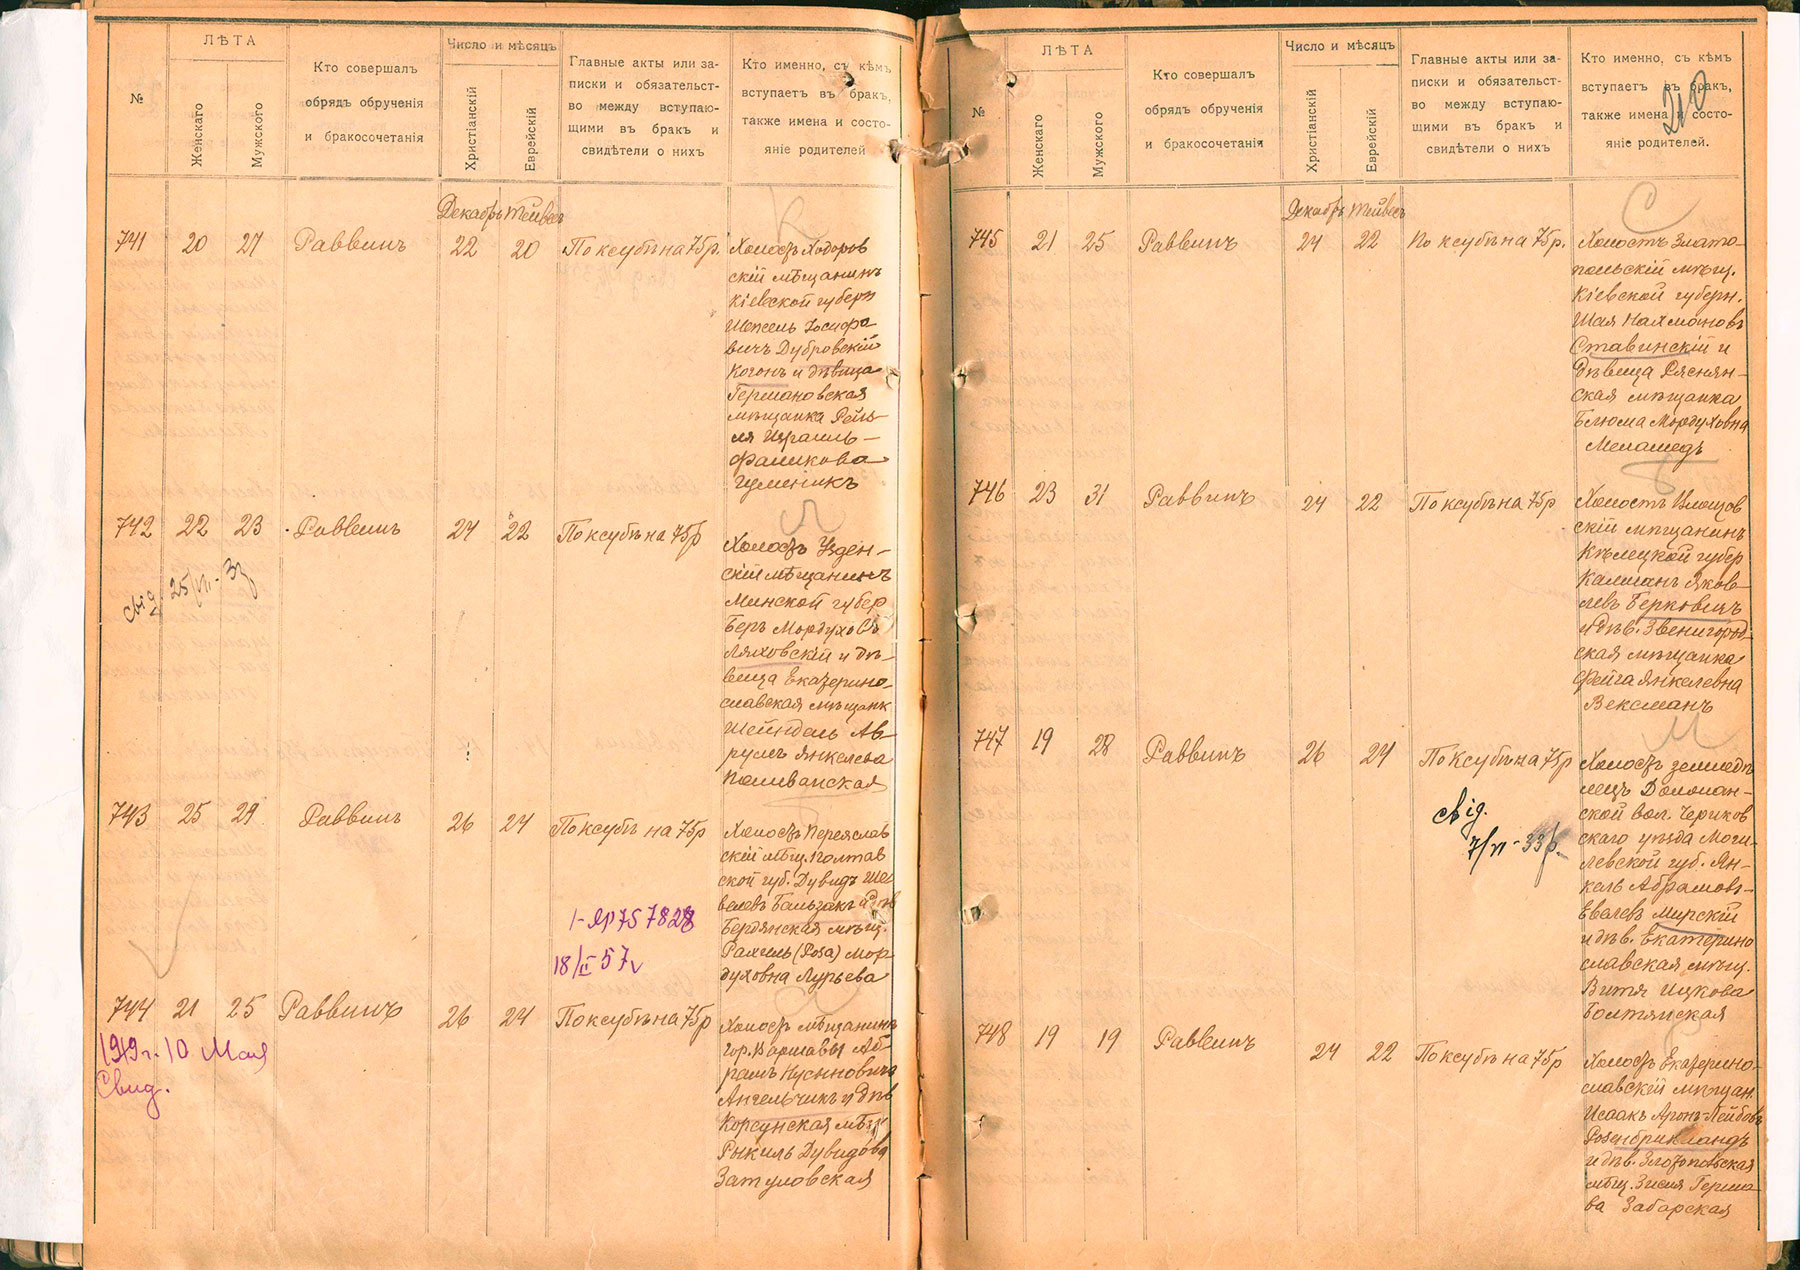 №
ЛѢТА
Женскаго
Мужского
Кто совершалъ
обрядъ обрученія
и бракосочетанія
Число и мѣсяцъ
Христіанскій
Еврейскій
Главные акты или за-
писки и обязательст-
во между вступаю-
щими въ бракъ и
свидѣтели о нихъ
Кто именно, съ кѣмъ
вступаетъ въ бракъ,
также имена и состо-
яніе родителей
Декабрь Тейвесъ
741 20 27 Раввинъ 22 20 По ксубѣ на 75 р.
Холостъ Ходоров
скій мѣщанинъ
Кіевской губерн
Шепсель Іосифо
вичъ Дубровскій
Когонъ и дѣвица
Германовская
мѣщанка Рей-
ля Израиль-
Фаликова
Гуменикъ
742 22 23 Раввинъ 24 22 По ксубѣ на 75 р
свід. 25/VII-33
Холостъ Узден-
скій мѣщанинъ
Минской губер
Беръ Мордуховъ
Ляховскій и дѣ-
вица Екатерино-
славская мѣщанк
Шейндель Ав-
румъ Янкелева
Поливанская
743 25 29 Раввинъ 26 24 По ксубѣ на 75 р
I-ЯР 757828
18/II 57
Холостъ Переяслав
скій мѣщ. Полтав
ской губ. Дувидъ Ше
велевъ Бальзакъ и дѣв
Бердянская мѣщ.
Рахиль (Роза) Мор
духовна Лурьева
744 21 25 Раввинъ 26 24 По ксубѣ на 75 р
1919 г. 10 Мая
Свид.
Холостъ мѣщанинъ
гор. Варшавы Аб-
рамъ Нусиновичъ
Ангельчикъ и дѣв
Корсунская мѣщ
Рыкиль Дувидова
Затуловская
№
ЛѢТА
Женскаго
Мужского
Кто совершалъ
обрядъ обрученія
и бракосочетанія
Число и мѣсяцъ
Христіанскій
Еврейскій
Главные акты или за-
писки и обязательст-
во между вступаю-
щими въ бракъ и
свидѣтели о нихъ
Кто именно, съ кѣмъ
вступаетъ въ бракъ,
также имена и состо-
яніе родителей.
210
Декабрь Тейвесъ
С
745 21 25 Раввинъ 24 22 По ксубѣ на 75 р.
Холостъ Злато-
польскій мѣщ.
Кіевской губерн.
Шая Нахмановъ
Ставинскій и
дѣвица Ряснян-
ская мѣщанка
Блюма Мордуховна
Меламедъ
Б
746 23 31 Раввинъ 24 22 По ксубѣ на 75 р
Холостъ Влощов
скій мѣщанинъ
Кѣлецкой губер
Калманъ Яков-
левъ Берковичъ
и дѣв. Звенигород-
ская мѣщанка
Фейга Янкелевна
Вексманъ
М
747 19 28 Раввинъ 26 24 По ксубѣ на 75 р
свід.
7/VI-33 р.
Холостъ земледѣ
лецъ Доломан-
ской вол. Чериков
скаго уѣзда Моги-
левской губ. Ян-
кель Абрамовъ-
Евелевъ Мирскій
и дѣв. Екатерино
славская мѣщ.
Витя Ицкова
Болтянская
748 19 19 Раввинъ 24 22 По ксубѣ на 75 р
Холостъ Екатерино-
славскій мѣщан.
Исаакъ Аронъ-Лейбовъ
Розенбрикландъ
и дѣв. Златопольская
мѣщ. Зисля Герша-
ва Забарская